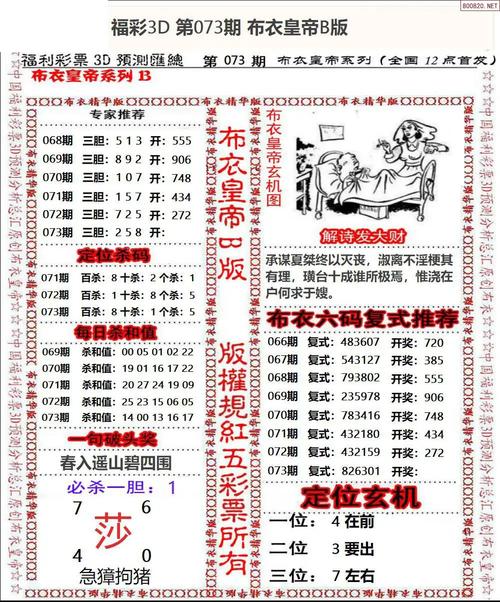 800820.NET
福彩3D 第073期 布衣皇帝B版
福利彩票3D預測匯總 第073期 布衣皇帝系列(全国12点首发)
布衣皇帝系列B
布衣精华版 布衣精华版
专家推荐
068期 三胆: 513 开: 555
069期 三胆: 892 开: 906
070期 三胆: 107 开: 748
071期 三胆: 157 开: 434
072期 三胆: 725 开: 272
073期 三胆: 258 开:
定位杀码
071期 百杀: 8十杀: 2个杀: 1
072期 百杀: 1十杀: 8个杀: 5
073期 百杀: 1十杀: 8个杀: 5
每日杀和值
069期 杀和值: 00 05 01 02 22
070期 杀和值: 19 01 16 17 22
071期 杀和值: 20 27 24 19 09
072期 杀和值: 25 23 15 06 05
073期 杀和值: 14 00 13 16 17
一句破头奖
春入遥山碧四围
必杀一胆: 1
7 6
莎
4 0
急獐拘猪
布衣皇帝B版 版權規紅五彩票所有
布衣皇帝玄机图
解诗发大财
承谋夏桀终以灭丧,淑离不淫梗其
有理,璜台十成谁所极焉,惟浇在
户何求于嫂。
布衣六码复式推荐
066期 复式: 483607 开奖: 720
067期 复式: 543127 开奖: 385
068期 复式: 793802 开奖: 555
069期 复式: 235978 开奖: 906
070期 复式: 783416 开奖: 748
071期 复式: 432180 开奖: 434
072期 复式: 432159 开奖: 272
073期 复式: 826301 开奖:
定位玄机
一位: 4 在前
二位 3 要出
三位: 7 左右
中国福利彩票3D预测分析总汇原创布衣皇帝☆☆